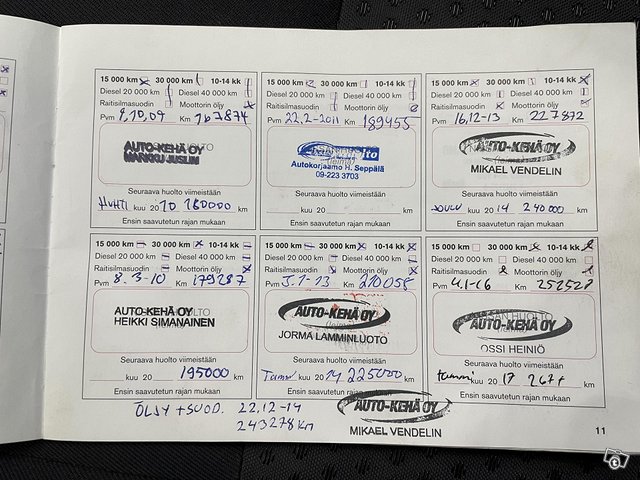 15 000 km 30 000 km 10-14 kk
Diesel 20 000 km Diesel 40 000 km
Raitisilmasuodin Moottorin öljy
Pvm 9,10,09 Km 167874
AUTO-KEHÄ OY
MARKKU JUSLIN
Seuraava huolto viimeistään
HUHTI kuu 20 10 180000 km
Ensin saavutetun rajan mukaan
15 000 km 30 000 km 10-14 kk
Diesel 20 000 km Diesel 40 000 km
Raitisilmasuodin Moottorin öljy
Pvm 22.2-2011 Km 189455
(leima)
Autokorjaamo H. Seppälä
09-223 3703
Seuraava huolto viimeistään
kuu 20 km
Ensin saavutetun rajan mukaan
15 000 km 30 000 km 10-14 kk
Diesel 20 000 km Diesel 40 000 km
Raitisilmasuodin Moottorin öljy
Pvm 16,12-13 Km 227872
AUTO-KEHÄ OY
(leima)
MIKAEL VENDELIN
Seuraava huolto viimeistään
JOULU kuu 20 14 240000 km
Ensin saavutetun rajan mukaan
15 000 km 30 000 km 10-14 kk
Diesel 20 000 km Diesel 40 000 km
Raitisilmasuodin Moottorin öljy
Pvm 8.3-10 Km 179287
AUTO-KEHÄ OY
HEIKKI SIMANAINEN
Seuraava huolto viimeistään
kuu 20 195000 km
Ensin saavutetun rajan mukaan
15 000 km 30 000 km 10-14 kk
Diesel 20 000 km Diesel 40 000 km
Raitisilmasuodin Moottorin öljy
Pvm 5.1-13 Km 210058
AUTO-KEHÄ OY
(leima)
JORMA LAMMINLUOTO
Seuraava huolto viimeistään
Tammi kuu 20 14 225000 km
Ensin saavutetun rajan mukaan
15 000 km 30 000 km 10-14 kk
Diesel 20 000 km Diesel 40 000 km
Raitisilmasuodin Moottorin öljy
Pvm 4.1-16 Km 252528
AUTO-KEHÄ OY
OSSI HEINIÖ
Seuraava huolto viimeistään
tammi kuu 20 17 267t km
Ensin saavutetun rajan mukaan
ÖLJY + SUOD. 22.12-14
243278 km
AUTO-KEHÄ OY
MIKAEL VENDELIN
11